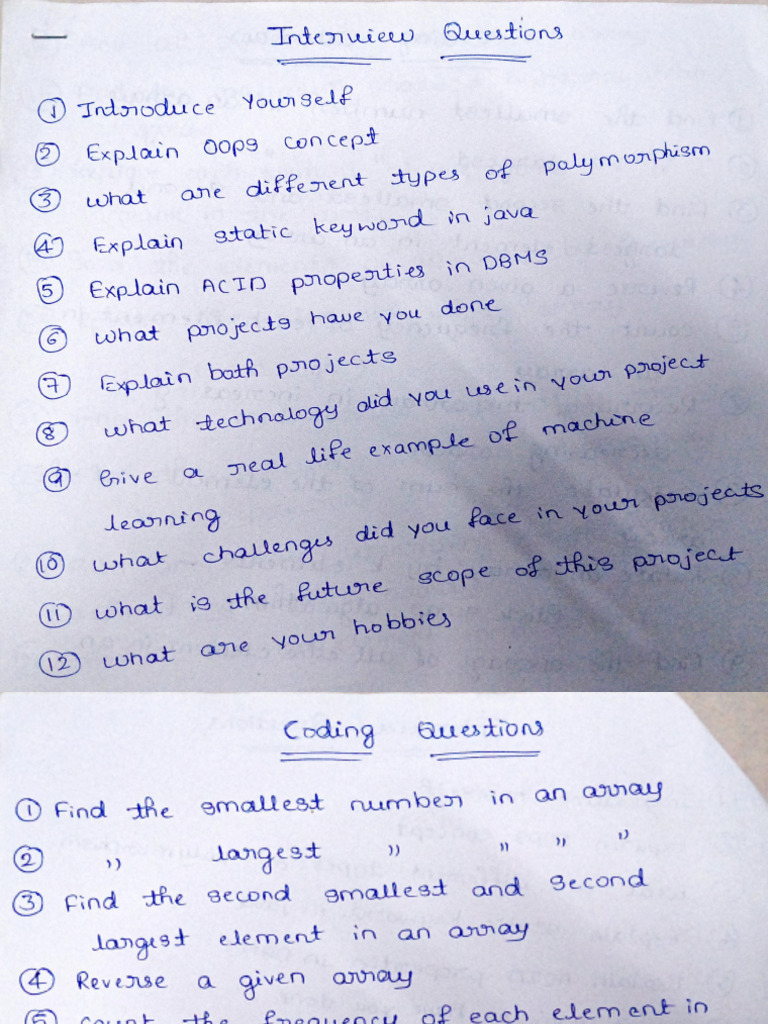 Interview Questions
① Introduce Yourself
② Explain OOPS concept
③ what are different types of palymorphism
④ Explain static keyword in java
⑤ Explain ACID properties in DBMS
⑥ what projects have you done
⑦ Explain both projects
⑧ what technology did you use in your project
⑨ Give a real life example of machine
learning
⑩ what challenges did you face in your projects
⑪ what is the future scope of this project
⑫ what are your hobbies
Coding Questions
① Find the smallest number in an array
② ,, largest ,, ,, ,, ,,
③ Find the second smallest and second
largest element in an array
④ Reverse a given array
⑤ count the frequency of each element in